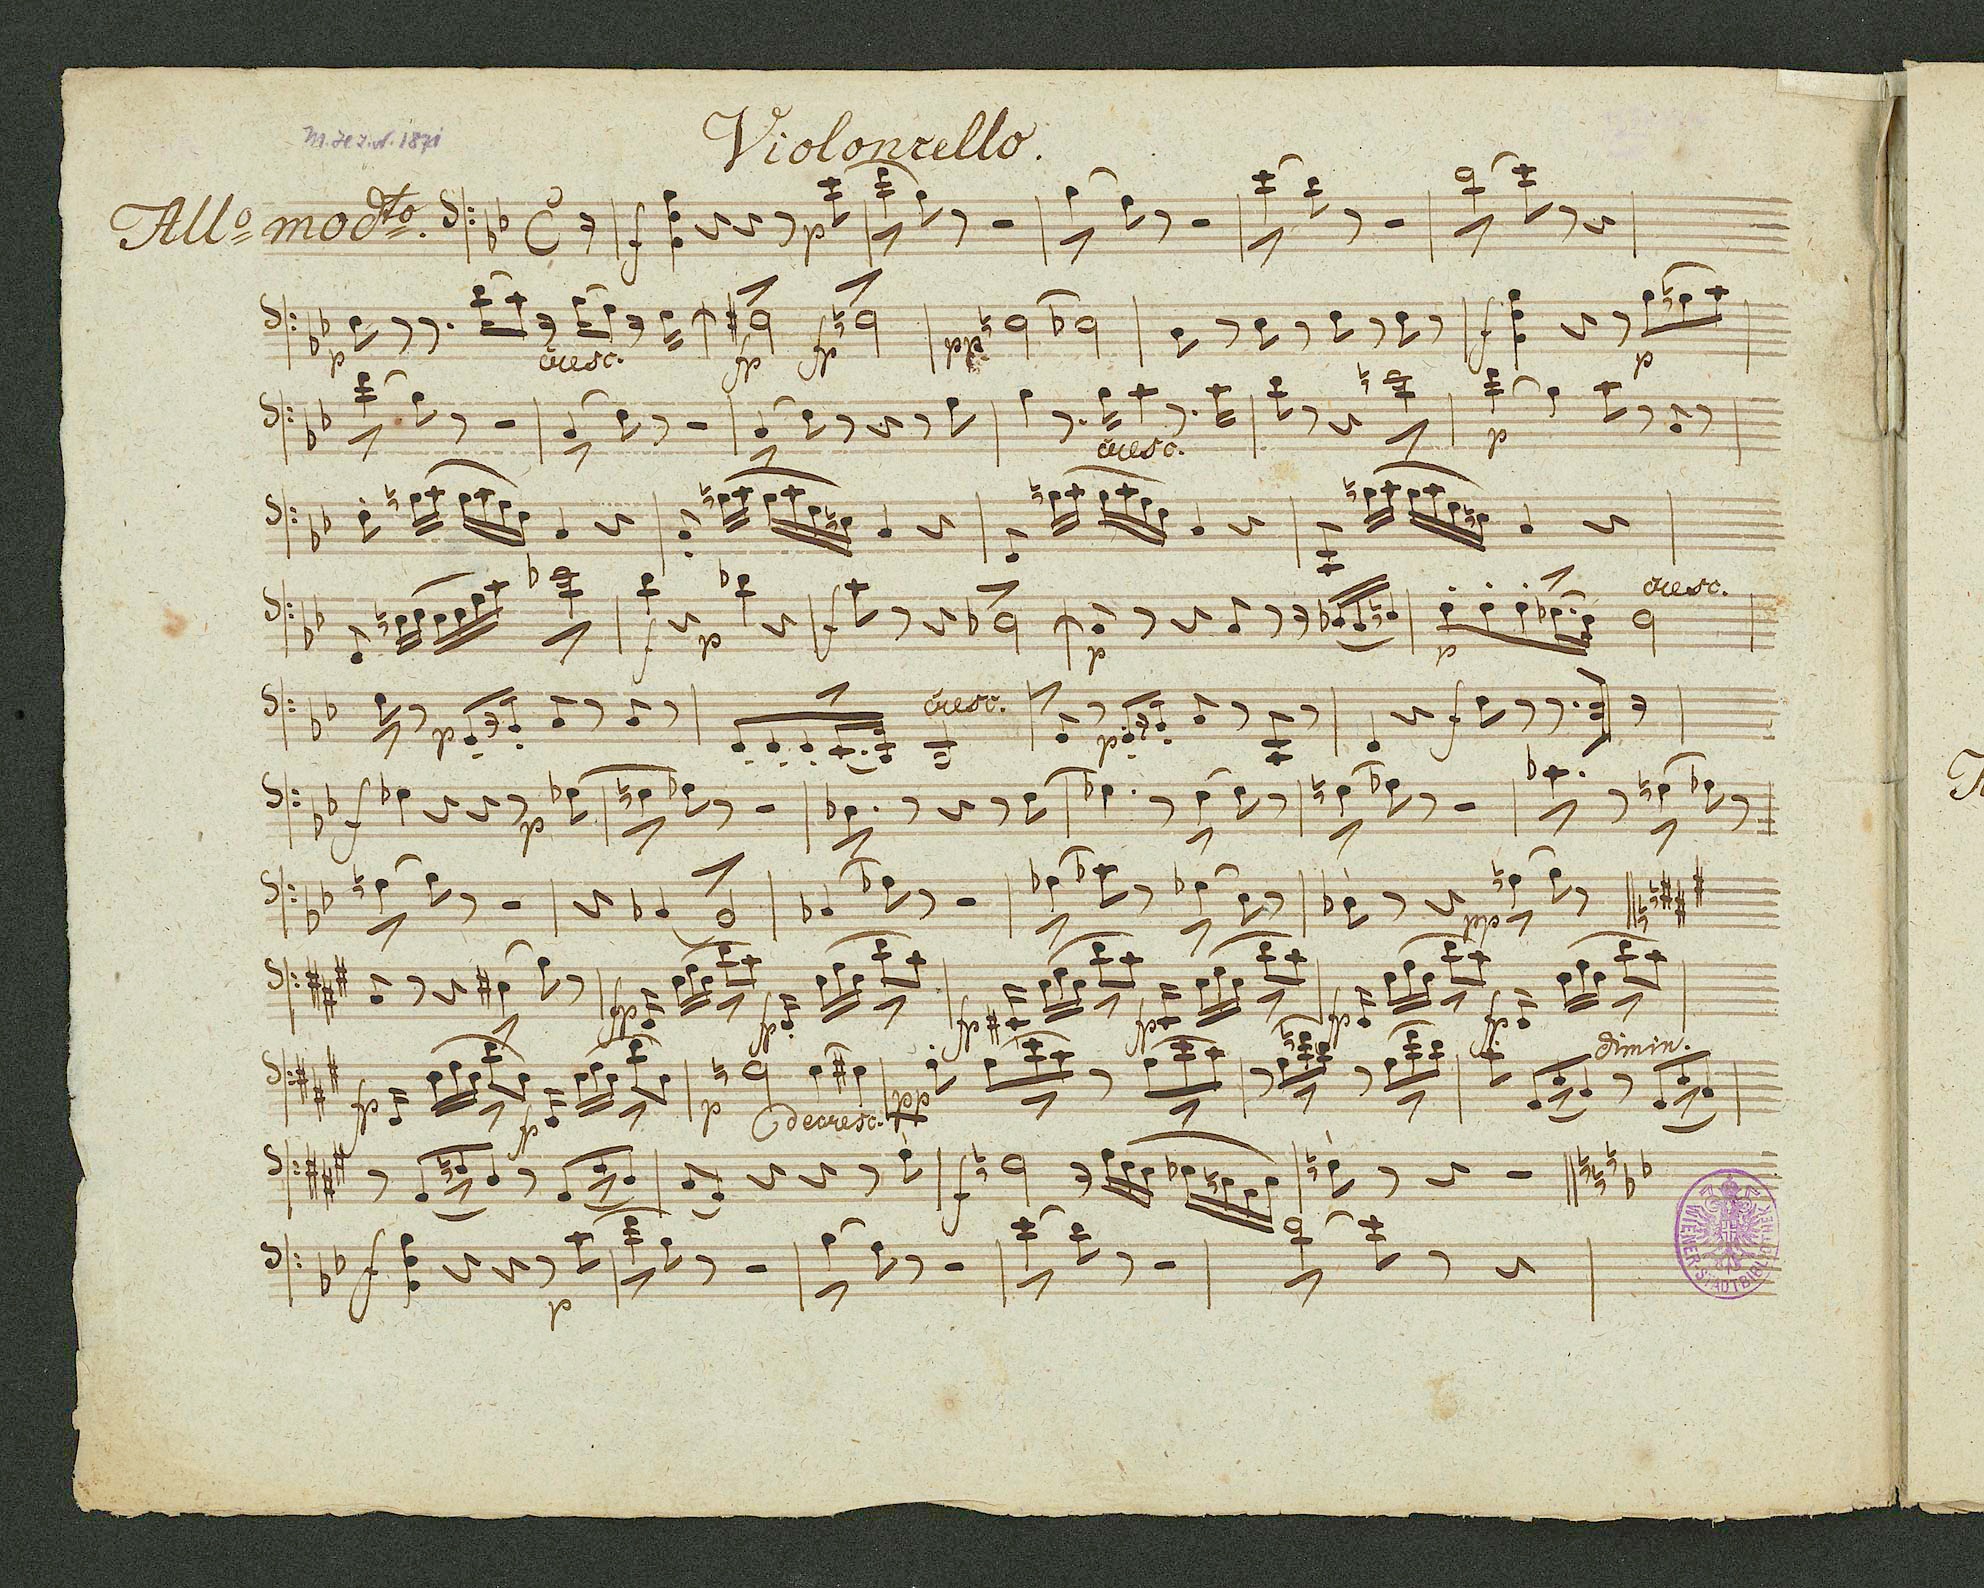 Violoncello.
Allo modto.
f p
p cresc. fp fp pp f p
cresc. p
f p f p p cresc.
p cresc. p f
f p
pp
fp fp fp fp fp fp
fp fp p decresc. pp dimin.
f
f p
WIENER STADTBIBLIOTHEK